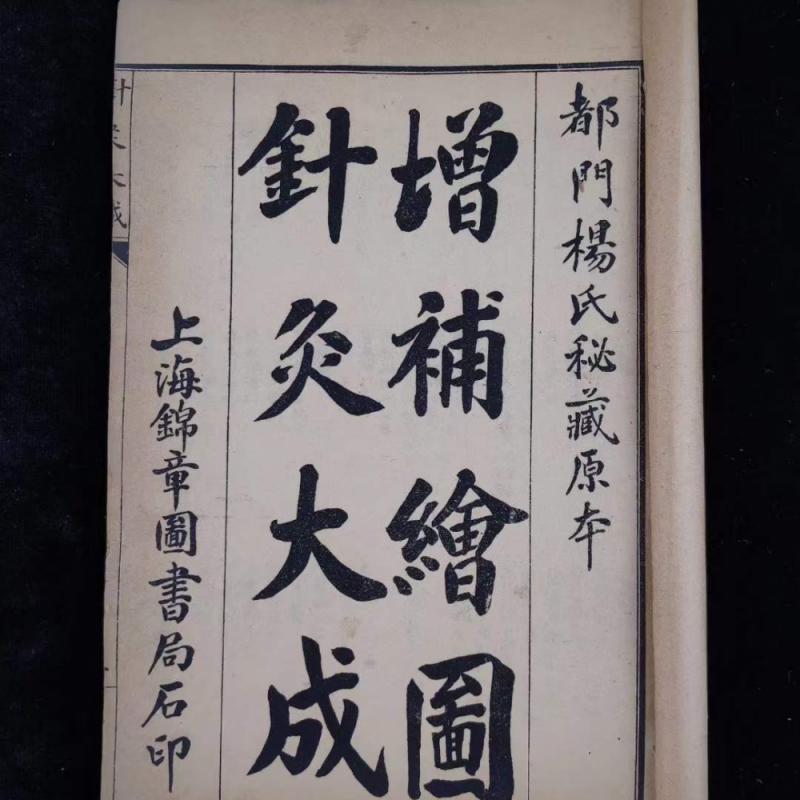 都門楊氏秘藏原本
增補繪圖
針灸大成
上海錦章圖書局石印
針灸大成